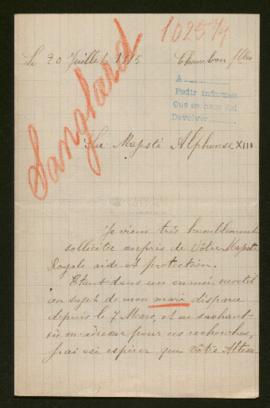 10257/1
Le 20 Juillet 1915
Sanglard
A
Pedir informes
Que se haga
Devolver
Sa Majesté Alphonse XIII
Je viens très humblement
solliciter auprès de Votre Majesté
Royale aide et protection.
Etant dans un ennui mortel
au sujet de mon mari disparu
depuis le 7 Mars, et ne sachant
où m'adresser pour ces recherches,
j'ai osé espérer que Votre Altesse